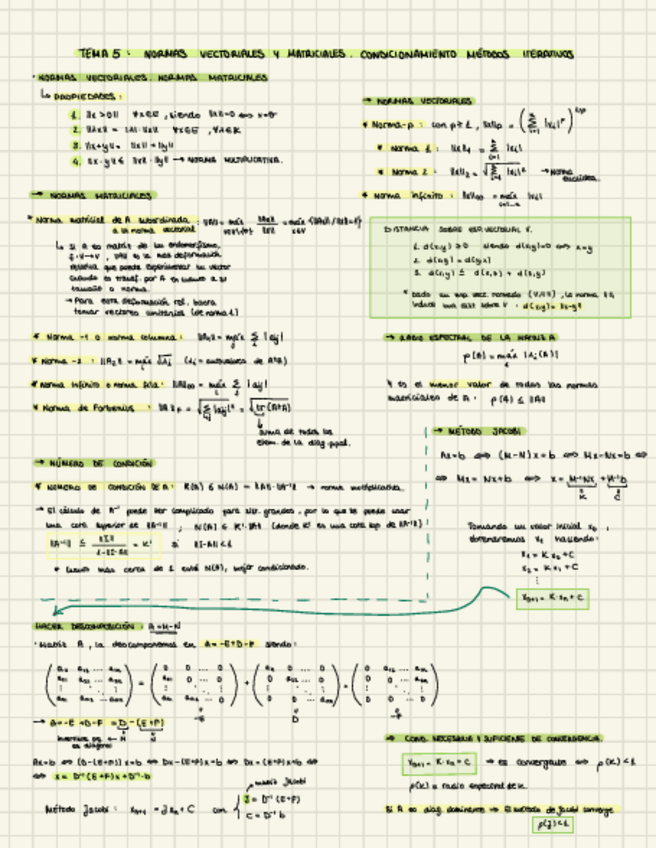 TEMA 5: NORMAS VECTORIALES Y MATRICIALES. CONDICIONAMIENTO MÉTODOS ITERATIVOS
· NORMAS VECTORIALES. NORMAS MATRICIALES
↳ PROPIEDADES:
1. ||x|| ≥ 0 ∀x∈E, siendo ||x||=0 ⟺ x=0
2. ||λx|| = |λ|·||x|| ∀x∈E, ∀λ∈K
3. ||x+y|| ≤ ||x||+||y||
4. ||x·y|| ≤ ||x||·||y|| → NORMA MULTIPLICATIVA.
→ NORMAS VECTORIALES
* Norma-p: con p≥1, ||x||p =
* Norma 1:
* Norma 2: → Norma euclídea.
* Norma infinito:
→ NORMAS MATRICIALES
* Norma matricial de A subordinada a la norma vectorial
↳ Si A es matriz de un endomorfismo,
f: V→V, es la más deformación
relativa que puede experimentar un vector
cuando es transf. por A en cuanto a su
tamaño o norma.
→ Para esta deformación rel. basta
tomar vectores unitarios (de norma 1)
DISTANCIA SOBRE ESP. VECTORIAL V.
1. d(x,y) ≥ 0 siendo d(x,y)=0 ⟺ x=y
2. d(x,y) = d(y,x)
3. d(x,y) ≤ d(x,z) + d(z,y)
* Dado un esp. vect. normado (V, || ||), la norma
induce una dist. sobre V: d(x,y) = ||x-y||
* Norma -1 o norma columna:
* Norma -2: (λi = autovalores de
* Norma Infinito o norma fila:
* Norma de Frobenius:
suma de todos los
elem. de la diag. ppal.
→ RADIO ESPECTRAL DE LA MATRIZ A
ρ(A) = máx |λi(A)|
* es el menor valor de todas las normas
matriciales de A: ρ(A) ≤ ||A||
→ NÚMERO DE CONDICIÓN
* NÚMERO DE CONDICIÓN DE A: K(A) ó N(A) = ||A||·||A⁻¹|| → norma multiplicativa.
→ El cálculo de A⁻¹ puede ser complicado para sist. grandes, por lo que se puede usar
una cota superior de ||A⁻¹||; N(A) ≤ K'·||A|| (donde K' es una cota sup de ||A⁻¹||)
||A⁻¹|| ≤ ||I|| / 1-||I-A|| = K' si ||I-A||<1
* Cuanto más cerca de 1 esté N(A), mejor condicionado.
→ MÉTODO JACOBI
Ax=b ⟺ (M-N)x=b ⟺ Mx-Nx=b ⟺
⟺ Mx = Nx+b ⟺ x = M⁻¹Nx + M⁻¹b
K C
Tomando un valor inicial x₀,
obtenemos x₁ haciendo:
x₁ = Kx₀+C
x₂ = Kx₁+C
⋮
xₙ₊₁ = K·xₙ+C
HACER DESCOMPOSICIÓN: A=M-N
· Matriz A, la descomponemos en A=-E+D-F siendo:
-E D -F
→ A=-E+D-F = D-(E+F)
Ax=b ⟺ (D-(E+F))x=b ⟺ Dx-(E+F)x=b ⟺ Dx=(E+F)x+b ⟺
⟺ x = D⁻¹(E+F)x+D⁻¹·b
matriz Jacobi
Método Jacobi: xₙ₊₁ = Jxₙ+C con
J = D⁻¹(E+F)
C = D⁻¹b
→ COND. NECESARIA Y SUFICIENTE DE CONVERGENCIA
xₙ₊₁ = K·xₙ+C → es convergente ⟺ ρ(K)<1
ρ(K) = radio espectral de K.
Si A es diag. dominante → El método de Jacobi converge
ρ(J)<1